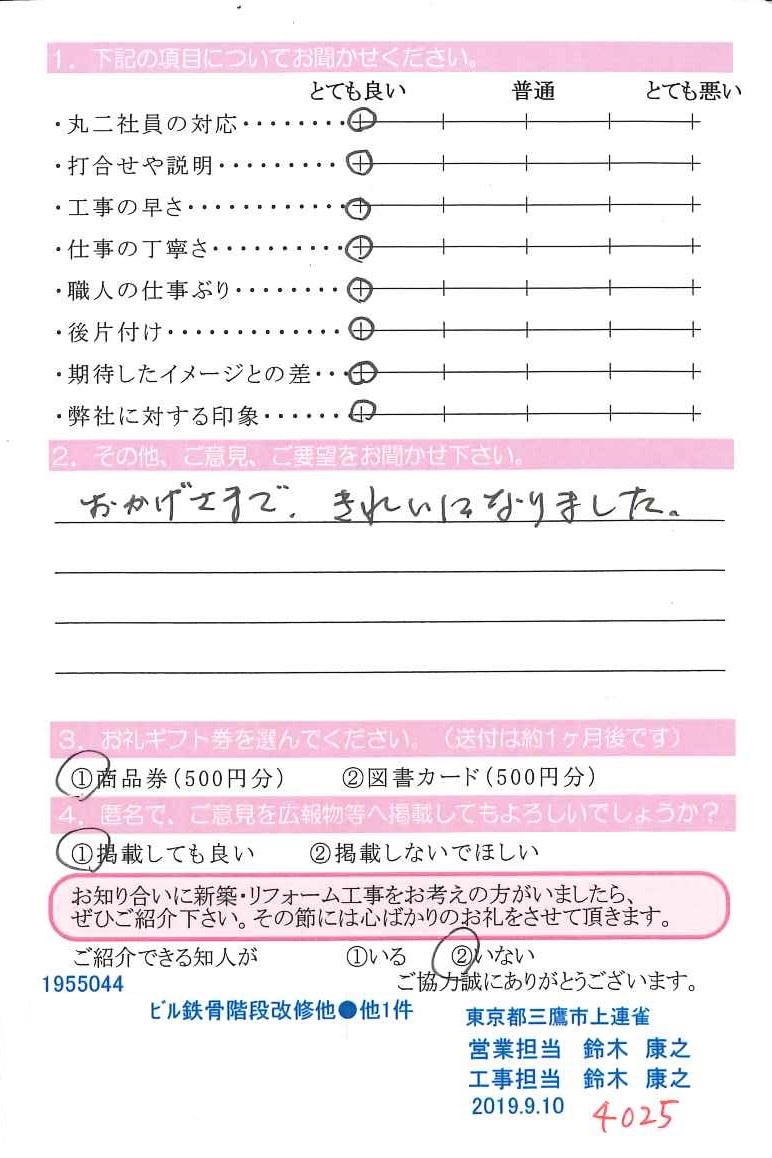 1. 下記の項目についてお聞かせください。
とても良い 普通 とても悪い
・丸二社員の対応・・・・・・・・
・打合せや説明・・・・・・・・・
・工事の早さ・・・・・・・・・・・
・仕事の丁寧さ・・・・・・・・・
・職人の仕事ぶり・・・・・・・・
・後片付け・・・・・・・・・・・・
・期待したイメージとの差・・・
・弊社に対する印象・・・・・・
2. その他、ご意見、ご要望をお聞かせ下さい。
おかげさまで、きれいになりました。
3. お礼ギフト券を選んでください。(送付は約1ヶ月後です)
①商品券(500円分) ②図書カード(500円分)
4. 匿名で、ご意見を広報物等へ掲載してもよろしいでしょうか?
①掲載しても良い ②掲載しないでほしい
お知り合いに新築・リフォーム工事をお考えの方がいましたら、
ぜひご紹介下さい。その節には心ばかりのお礼をさせて頂きます。
ご紹介できる知人が ①いる ②いない
1955044 ご協力誠にありがとうございます。
ビル鉄骨階段改修他●他1件 東京都三鷹市上連雀
営業担当 鈴木 康之
工事担当 鈴木 康之
2019.9.10 4025